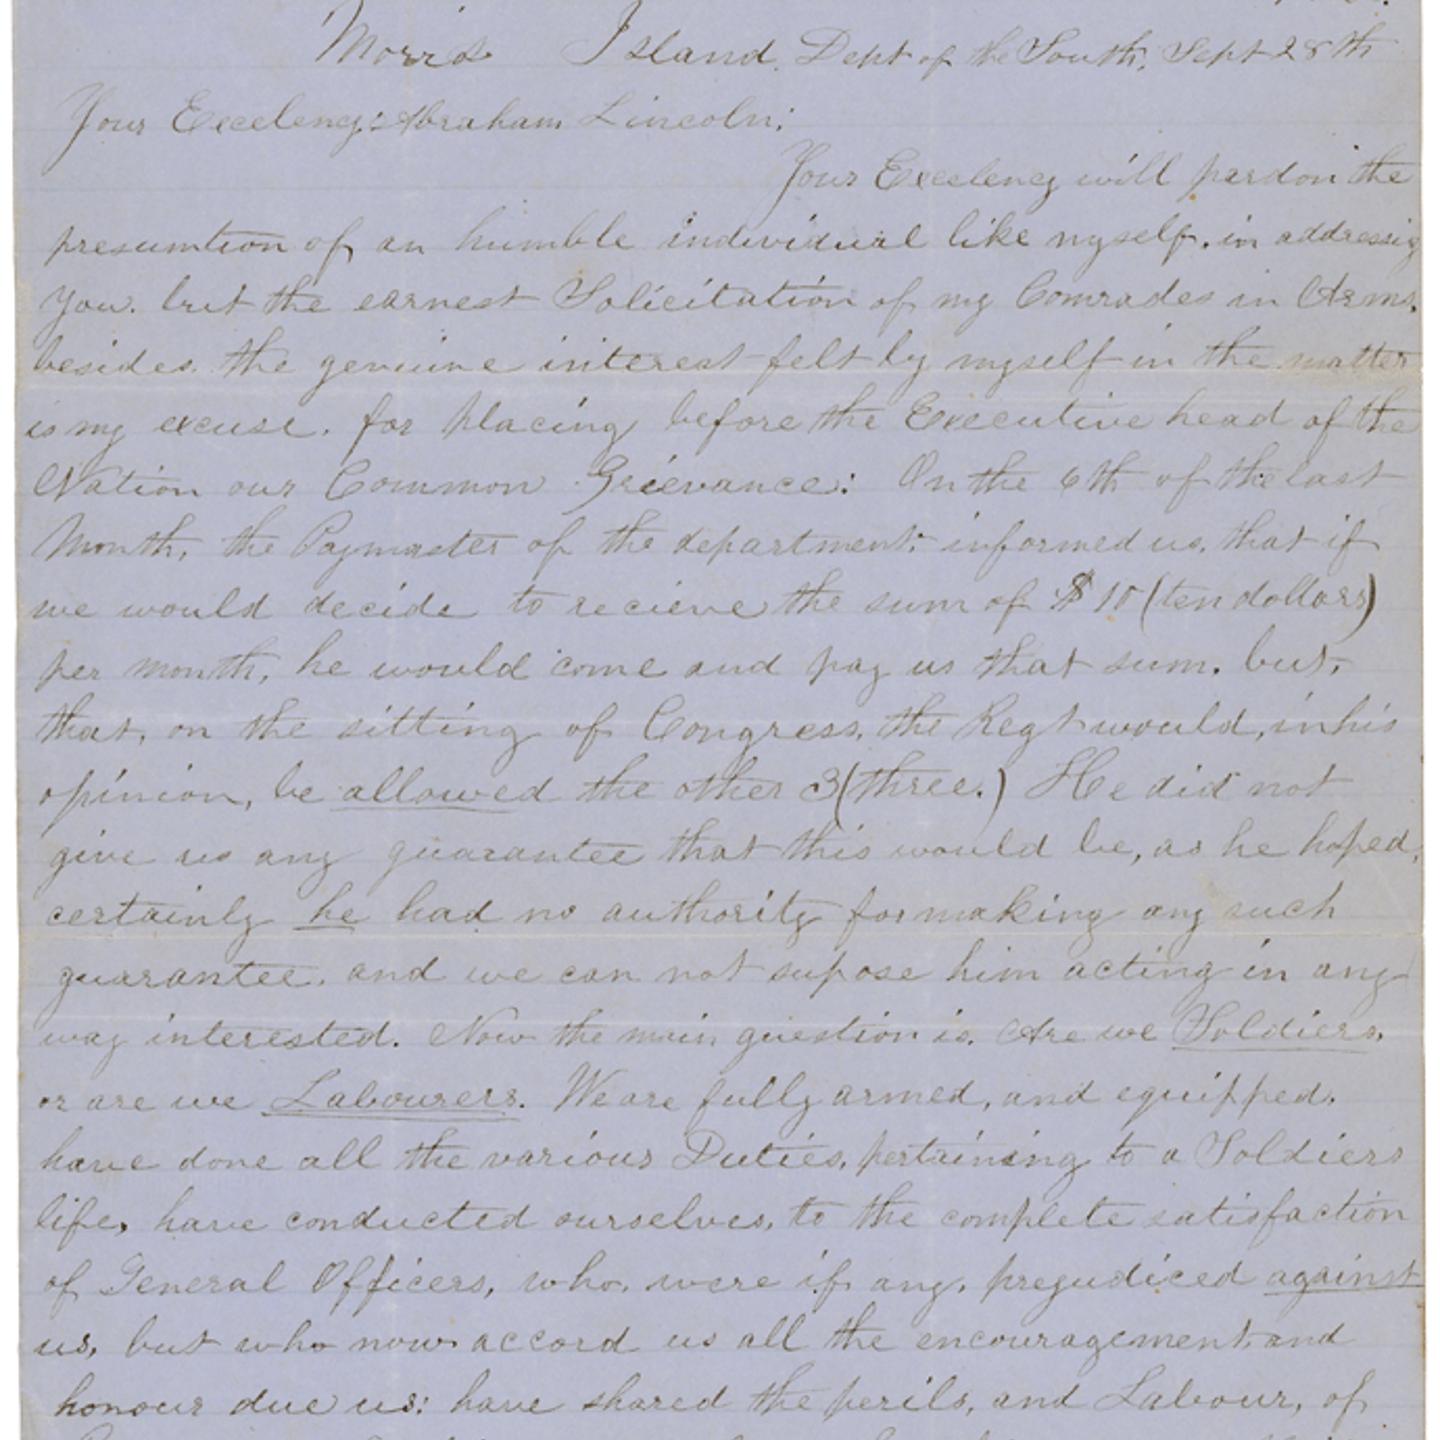 Morris Island. Dept of the South. Sept 28th
Your Excelency: Abraham Lincoln:
Your Excelency will pardon the
presumtion of an humble individual like myself. in addressing
you. but the earnest Solicitation of my Comrades in Arms.
besides. the genuine interest felt by myself in the matter
is my excuse. for placing before the Executive head of the
Nation our Common Grievance: On the 6th of the last
Month, the Paymaster of the department. informed us. that if
we would decide to recieve the sum of $10 (ten dollars)
per month, he would come and pay us that sum. but,
that, on the sitting of Congress, the Regt would, in his
opinion, be allowed the other 3 (three.) He did not
give us any guarantee that this would be, as he hoped,
certainly he had no authority for making any such
guarantee. and we can not supose him acting in any
way interested. Now the main question is. Are we Soldiers.
or are we Labourers. We are fully armed, and equipped.
have done all the various Duties, pertaining to a Soldiers
life, have conducted ourselves, to the complete satisfaction
of General Officers, who. were if any, prejudiced against
us, but who now accord us all the encouragement and
honour due us: have shared the perils, and Labour, of